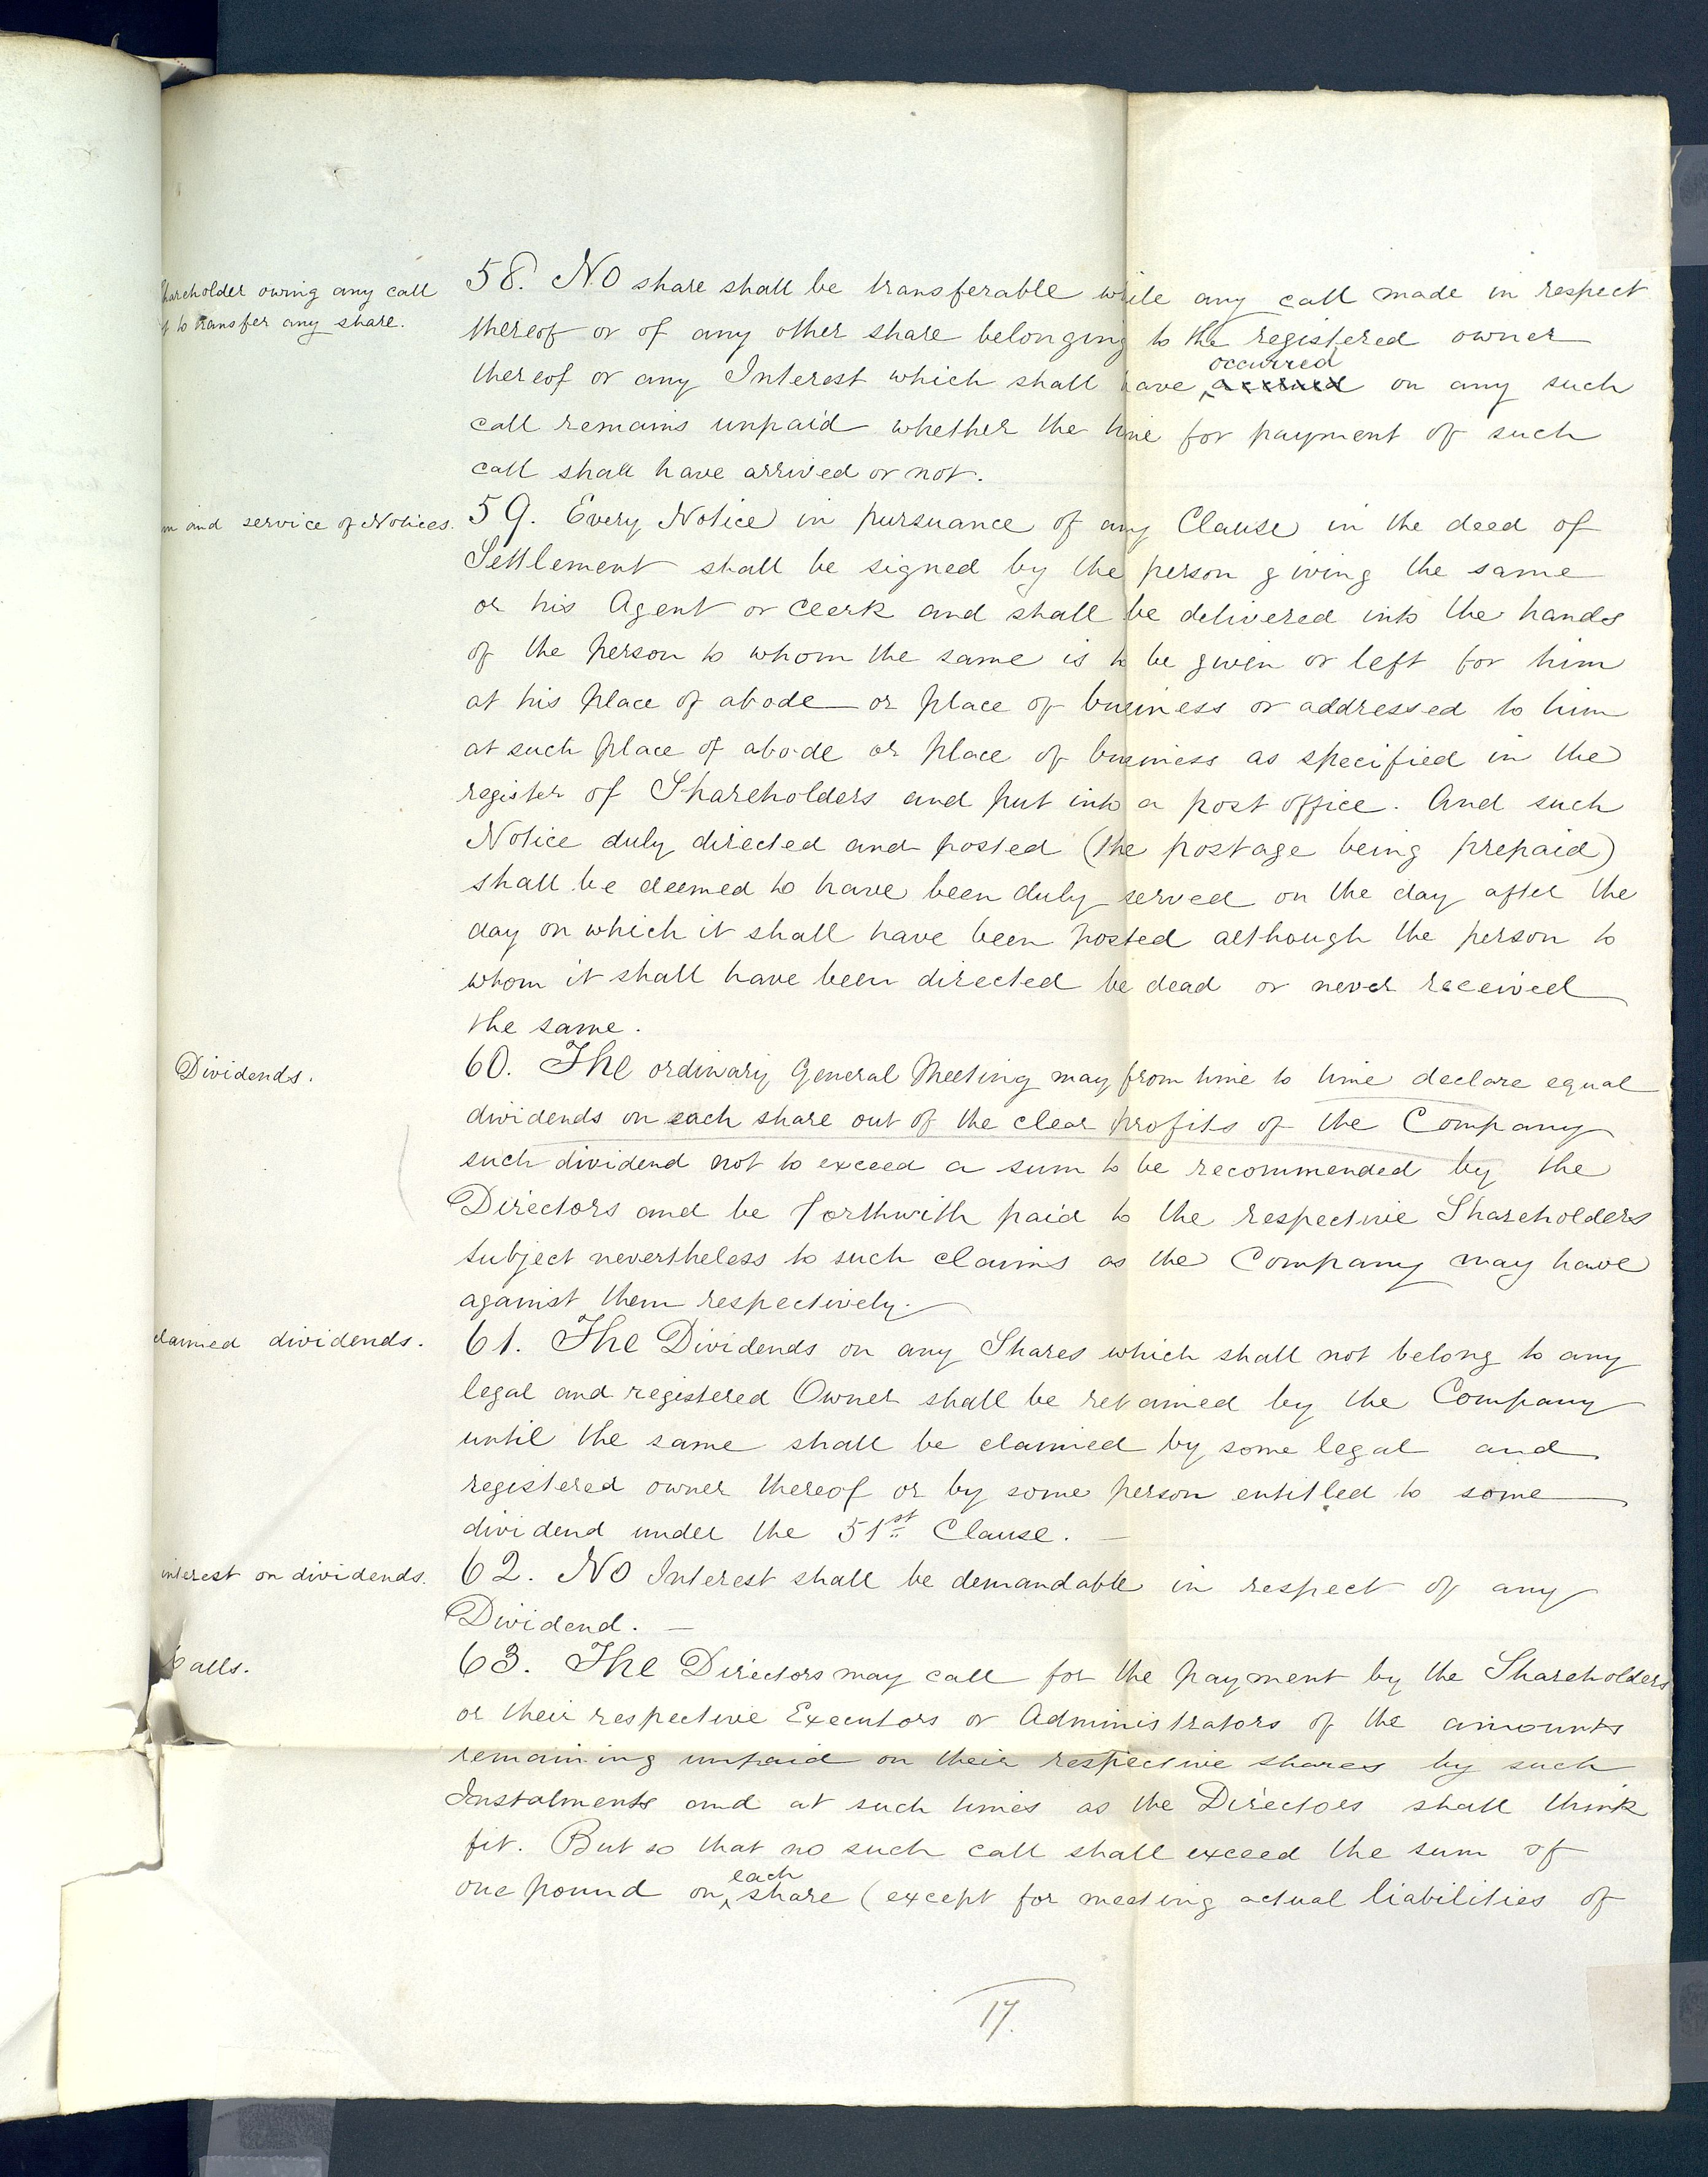 shareholder owing any call
to transfer any share.
58. No share shall be transferable while any call made in respect
thereof or of any other share belonging to the registered owner
occurred
thereof or any Interest which shall have on any such
call remains unpaid whether the time for payment of such
call shall have arrived or not.
and service of Notices.
59. Every Notice in pursuance of any Clause in the deed of
Settlement shall be signed by the person giving the same
or his Agent or Clerk and shall be delivered into the hands
of the person to whom the same is to be given or left for him
at his place of abode or place of business or addressed to him
at such place of abode or place of business as specified in the
register of Shareholders and put into a post office. And such
Notice duly directed and posted (the postage being prepaid)
shall be deemed to have been duly served on the day after the
day on which it shall have been posted although the person to
whom it shall have been directed be dead or never received
the same.
Dividends.
60. The ordinary General Meeting may from time to time declare equal
dividends on each share out of the clear profits of the Company
such dividend not to exceed a sum to be recommended by the
Directors and be forthwith paid to the respective Shareholders
subject nevertheless to such claims as the Company may have
against them respectively.
claimed dividends.
61. The Dividends on any Shares which shall not belong to any
legal and registered Owner shall be retained by the Company
until the same shall be claimed by some legal and
registered owner thereof or by some person entitled to some
dividend under the 51st Clause. —
interest on dividends.
62. No Interest shall be demandable in respect of any
Dividend. —
Calls.
63. The Directors may call for the payment by the Shareholders
or their respective Executors or Administrators of the amounts
remaining unpaid on their respective shares by such
Instalments and at such times as the Directors shall think
fit. But so that no such call shall exceed the sum of
each
one pound on share (except for meeting actual liabilities of
17.